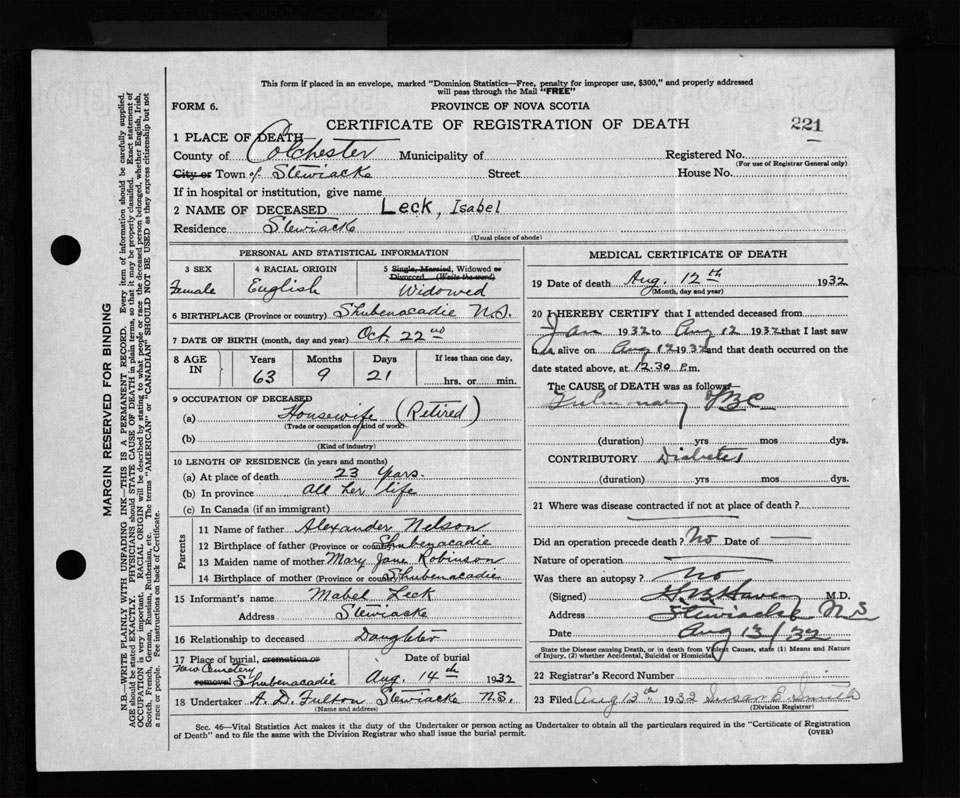 This form if placed in an envelope, marked "Dominion Statistics—Free, penalty for improper use, $300," and properly addressed
will pass through the Mail "FREE"
FORM 6.
PROVINCE OF NOVA SCOTIA
CERTIFICATE OF REGISTRATION OF DEATH
221
1 PLACE OF DEATH
County of Colchester Municipality of Registered No.
(For use of Registrar General only)
City or Town of Stewiacke Street House No.
If in hospital or institution, give name
2 NAME OF DECEASED Leck, Isabel
Residence Stewiacke
(Usual place of abode)
PERSONAL AND STATISTICAL INFORMATION
3 SEX
Female
4 RACIAL ORIGIN
English
5 Single, Married, Widowed or
Divorced (Write the word)
Widowed
6 BIRTHPLACE (Province or country) Shubenacadie N.S.
7 DATE OF BIRTH (month, day and year) Oct. 22nd
8 AGE IN
Years Months Days If less than one day,
63 9 21 hrs. or min.
9 OCCUPATION OF DECEASED
(a) Housewife (Retired)
(Trade or occupation or kind of work)
(b)
(Kind of industry)
10 LENGTH OF RESIDENCE (in years and months)
(a) At place of death 23 Years.
(b) In province all her life
(c) In Canada (if an immigrant)
Parents
11 Name of father Alexander Nelson
12 Birthplace of father (Province or country) Shubenacadie
13 Maiden name of mother Mary Jane Robinson
14 Birthplace of mother (Province or country) Shubenacadie
15 Informant's name Mabel Leck
Address Stewiacke
16 Relationship to deceased Daughter
17 Place of burial, cremation or
removal New Cemetery Shubenacadie
Date of burial
Aug. 14th 1932
18 Undertaker A. D. Fulton Stewiacke N.S.
(Name and address)
MEDICAL CERTIFICATE OF DEATH
19 Date of death Aug. 12th 1932
(Month, day and year)
20 I HEREBY CERTIFY that I attended deceased from
Jan 1932 to Aug 12 1932 that I last saw
her alive on Aug 12 1932 and that death occurred on the
date stated above, at 12.30 P.m.
The CAUSE of DEATH was as follows:
Pulmonary TBC
(duration) yrs mos dys.
CONTRIBUTORY Diabetes
(duration) yrs mos dys.
21 Where was disease contracted if not at place of death?
Did an operation precede death? No Date of
Nature of operation
Was there an autopsy? No
(Signed) M.D.
Address Stewiacke N.S
Date Aug 13/32
State the Disease causing Death, or in death from Violent Causes, state (1) Means and Nature
of Injury, (2) whether Accidental, Suicidal or Homicidal
22 Registrar's Record Number
23 Filed Aug 13th 1932 Susan E. Smith
(Division Registrar)
Sec. 46—Vital Statistics Act makes it the duty of the Undertaker or person acting as Undertaker to obtain all the particulars required in the "Certificate of Registration
of Death" and to file the same with the Division Registrar who shall issue the burial permit.
(OVER)
MARGIN RESERVED FOR BINDING
N.B.—WRITE PLAINLY WITH UNFADING INK—THIS IS A PERMANENT RECORD. Every item of information should be carefully supplied.
AGE should be stated EXACTLY. PHYSICIANS should STATE CAUSE OF DEATH in plain terms, so that it may be properly classified. Exact statement of
OCCUPATION is very important. RACIAL ORIGIN will be described by stating to what people or race the deceased person belonged, whether English, Irish,
Scotch, French, German, Russian, Ruthenian, etc. The terms "AMERICAN" or "CANADIAN" SHOULD NOT BE USED as they express citizenship but not
a race or people. See instructions on back of Certificate.